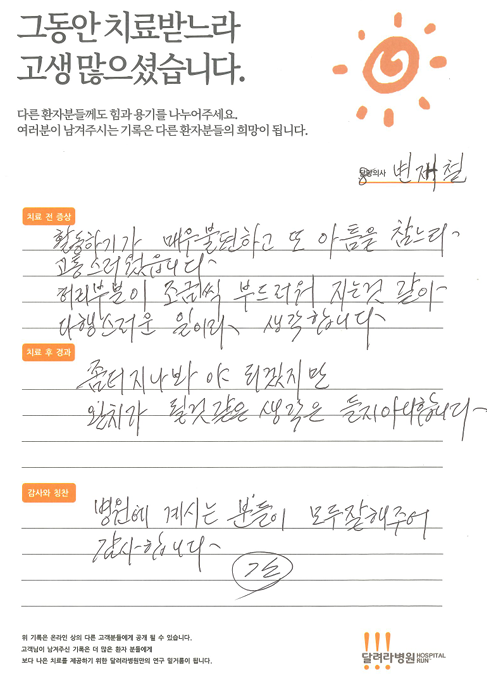 그동안 치료받느라
고생 많으셨습니다.
다른 환자분들께도 힘과 용기를 나누어주세요.
여러분이 남겨주시는 기록은 다른 환자분들의 희망이 됩니다.
담당의사 변재철
치료 전 증상
활동하기가 매우불편하고 또 아픔을 참느라
고통스러웠읍니다
허리부분이 조금씩 부드러워 지는것 같아
다행스러운 일이라 생각합니다
치료 후 경과
좀더지나봐야 되겠지만
완치가 될것같은 생각은 들지아니합니다
감사와 칭찬
병원에 계시는 분들이 모두잘해주어
감사합니다
위 기록은 온라인 상의 다른 고객분들에게 공개 될 수 있습니다.
고객님이 남겨주신 기록은 더 많은 환자 분들에게
보다 나은 치료를 제공하기 위한 달려라병원만의 연구 밑거름이 됩니다.
달려라병원 HOSPITAL RUN